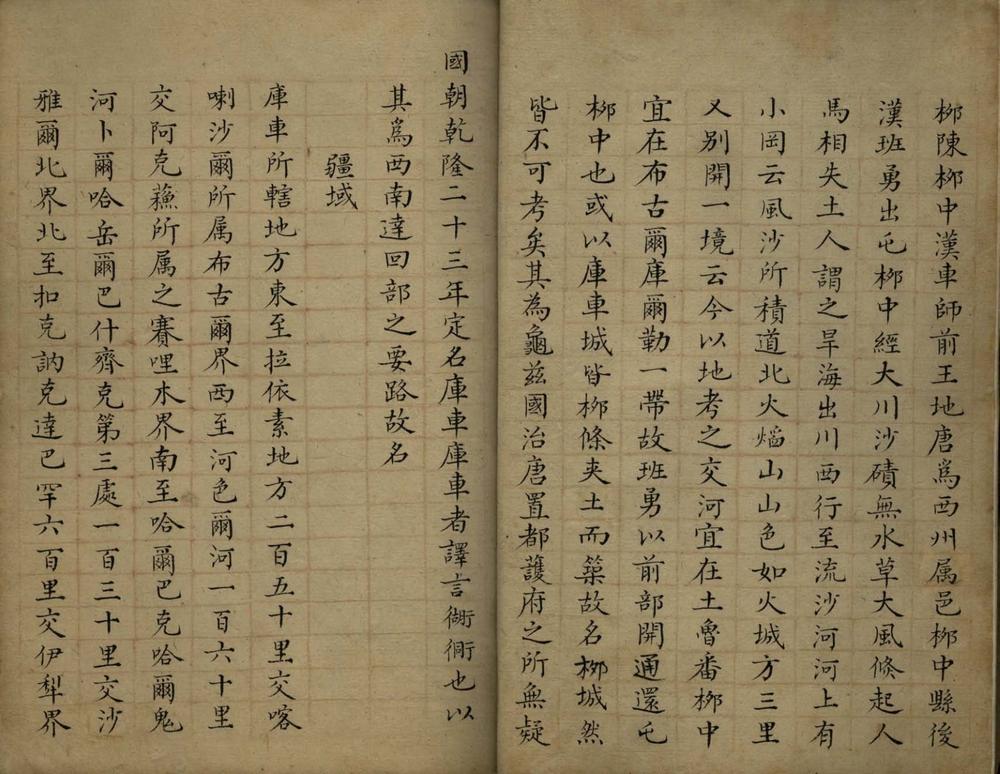 柳陳柳中漢車師前王地唐爲西州属邑柳中縣後
漢班勇出屯柳中經大川沙磧無水草大風倐起人
馬相失土人謂之旱海出川西行至流沙河河上有
小岡云風沙所積道北火熖山山色如火城方三里
又别開一境云今以地考之交河宜在土魯番柳中
宜在布古爾庫爾勤一帶故班勇以前部開通還屯
柳中也或以庫車城皆柳條夹土而築故名柳城然
皆不可考矣其為龜兹國治唐置都䕶府之所無疑
國朝乾隆二十三年定名庫車庫車者譯言衚衕也以
其爲西南達回部之要路故名
疆域
庫車所轄地方東至拉依素地方二百五十里交喀
喇沙爾所属布古爾界西至河色爾河一百六十里
交阿克蘓所属之賽哩木界南至哈爾巴克哈爾鬼
河卜爾哈岳爾巴什齊克第三處一百三十里交沙
雅爾北界北至扣克訥克達巴罕六百里交伊犁界